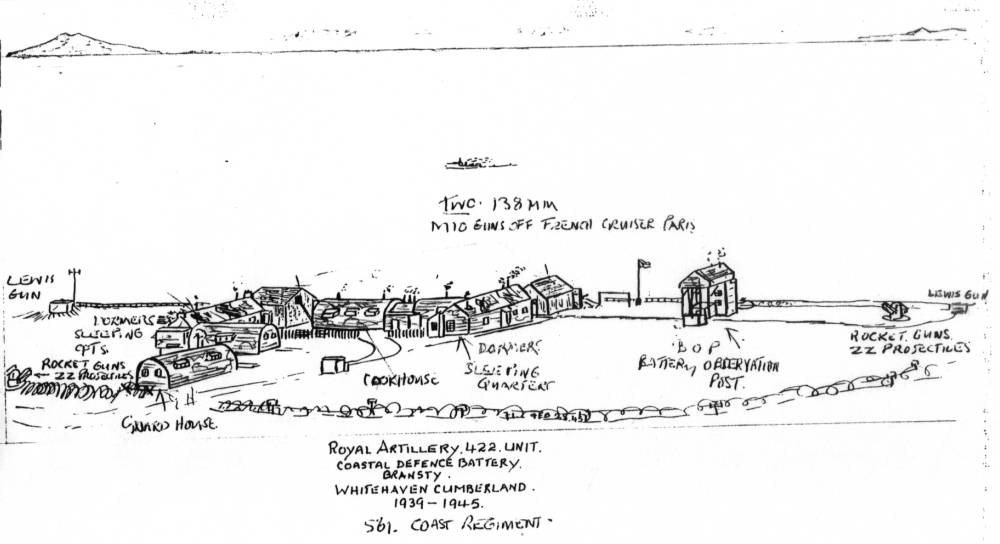 TWO. 138MM
M10 GUNS OFF FRENCH CRUISER PARIS
LEWIS
GUN
DORMERS
SLEEPING
QPTS.
ROCKET GUNS
ZZ PROJECTILES
GUARD HOUSE
COOKHOUSE
DORMERS
SLEEPING
QUARTERS
B O P
BATTERY OBSERVATION
POST.
LEWIS GUN
ROCKET. GUNS.
ZZ PROJECTILES
ROYAL ARTILLERY. 422. UNIT.
COASTAL DEFENCE BATTERY.
BRANSTY.
WHITEHAVEN CUMBERLAND.
1939-1945.
561. COAST REGIMENT.